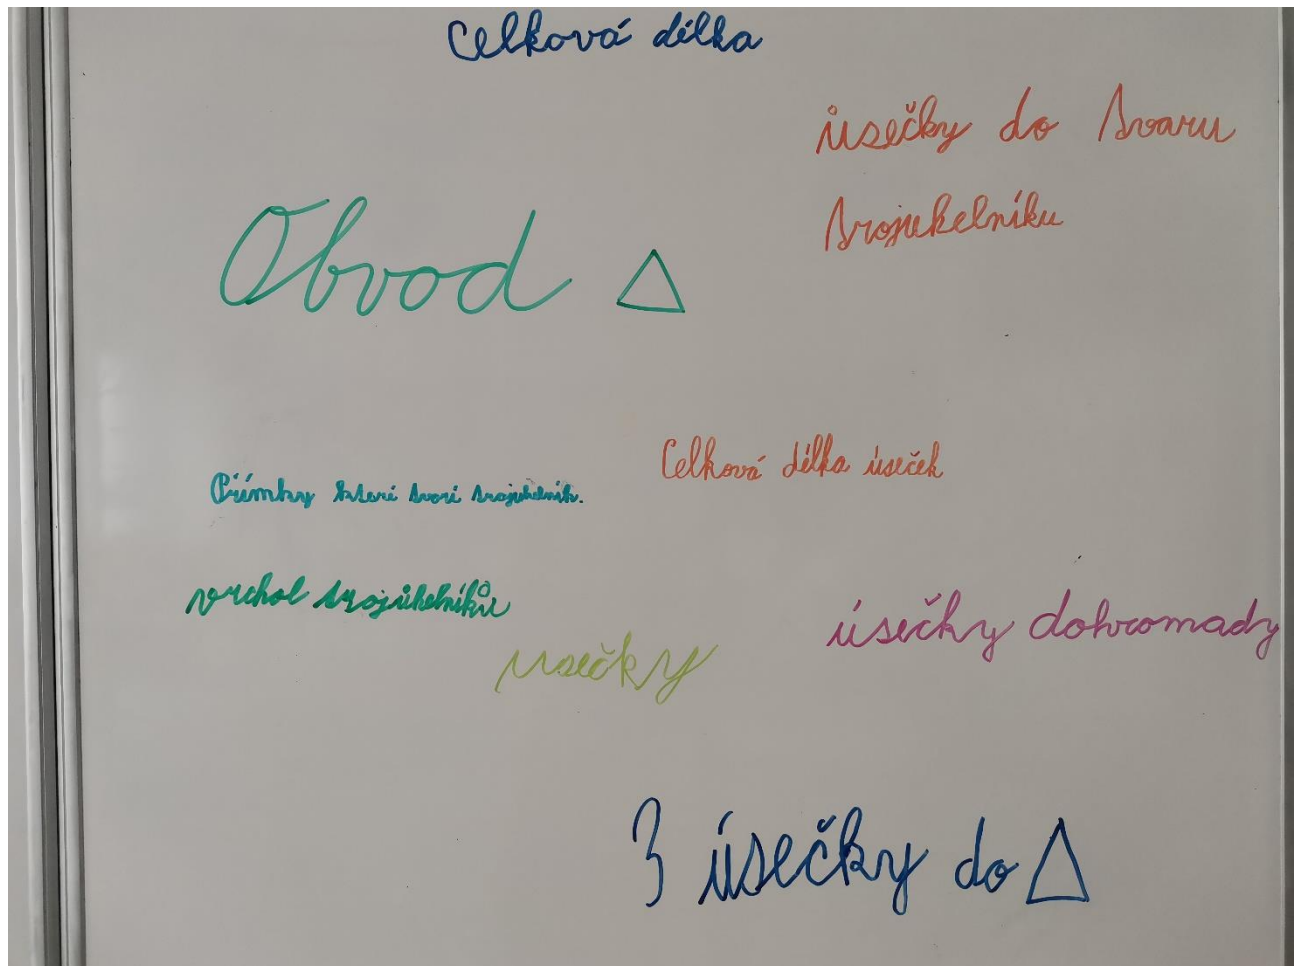 Celková délka
úsečky do tvaru
trojuhelníku
Obvod △
Celková délka úseček
Přímky kteri tvorí trojuhelník.
vrchol trojůhelníků
usečky
úsečky dohromady
3 úsečky do △